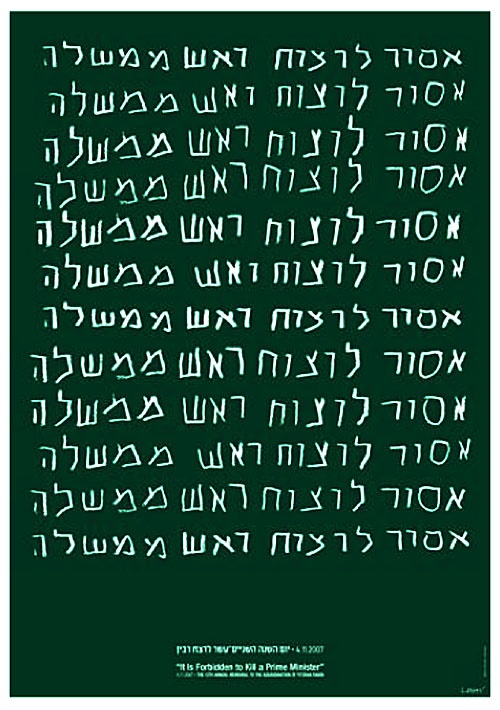 אסור לרצוח ראש ממשלה
אסור לרצוח ראש ממשלה
אסור לרצוח ראש ממשלה
אסור לרצוח ראש ממשלה
אסור לרצוח ראש ממשלה
אסור לרצוח ראש ממשלה
אסור לרצוח ראש ממשלה
אסור לרצוח ראש ממשלה
אסור לרצוח ראש ממשלה
אסור לרצוח ראש ממשלה
אסור לרצוח ראש ממשלה
אסור לרצוח ראש ממשלה
יום השנה השניים־עשר לרצח רבין • 4.11.2007
"It Is Forbidden to Kill a Prime Minister"
4.11.2007 • THE 12TH ANNUAL MEMORIAL TO THE ASSASSINATION OF YITZHAK RABIN